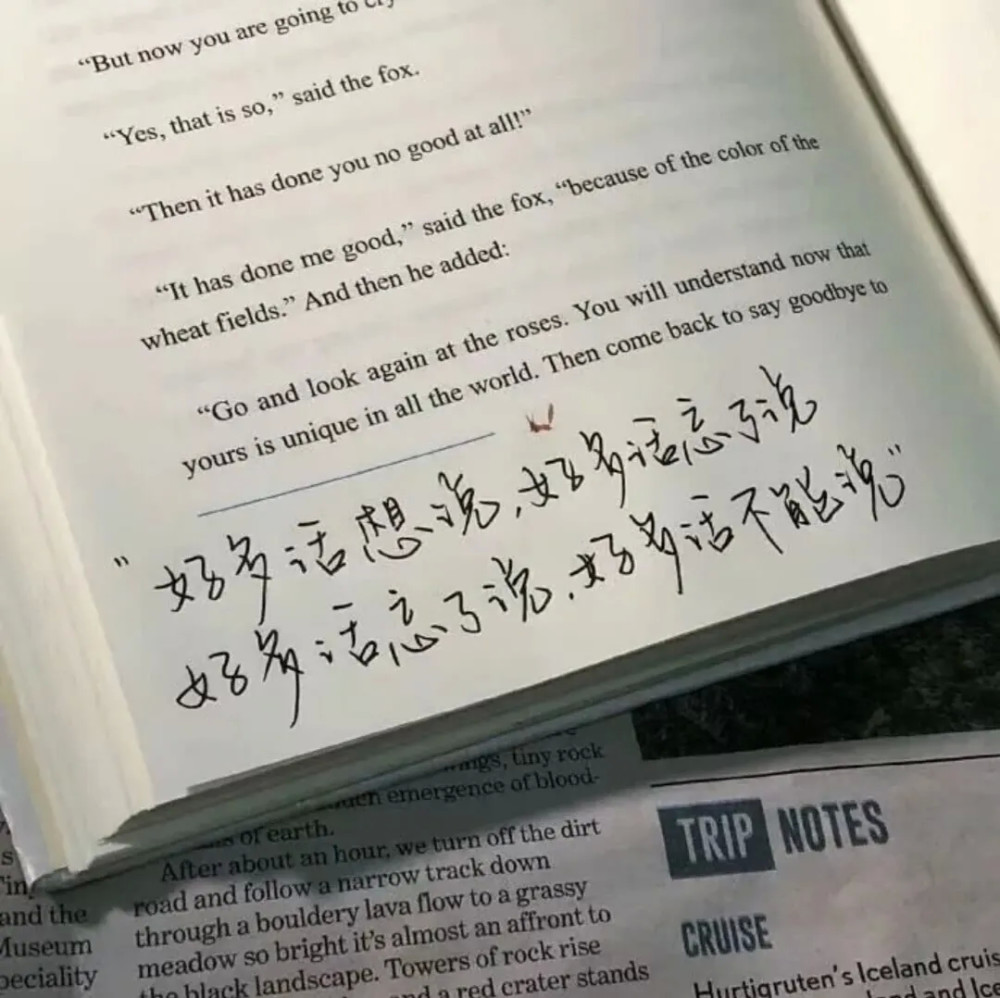 “But now you are going to cry
“Yes, that is so,” said the fox.
“Then it has done you no good at all!”
“It has done me good,” said the fox, “because of the color of the
wheat fields.” And then he added:
“Go and look again at the roses. You will understand now that
yours is unique in all the world. Then come back to say goodbye to
“好多话想说,好多话忘了说
好多话忘了说,好多话不能说”
tiny rock
emergence of blood-
of earth.
After about an hour, we turn off the dirt
road and follow a narrow track down
through a bouldery lava flow to a grassy
meadow so bright it's almost an affront to
the black landscape. Towers of rock rise
and a red crater stands
and the
Museum
peciality
TRIP NOTES
CRUISE
Hurtigruten's Iceland cruis
and Ice